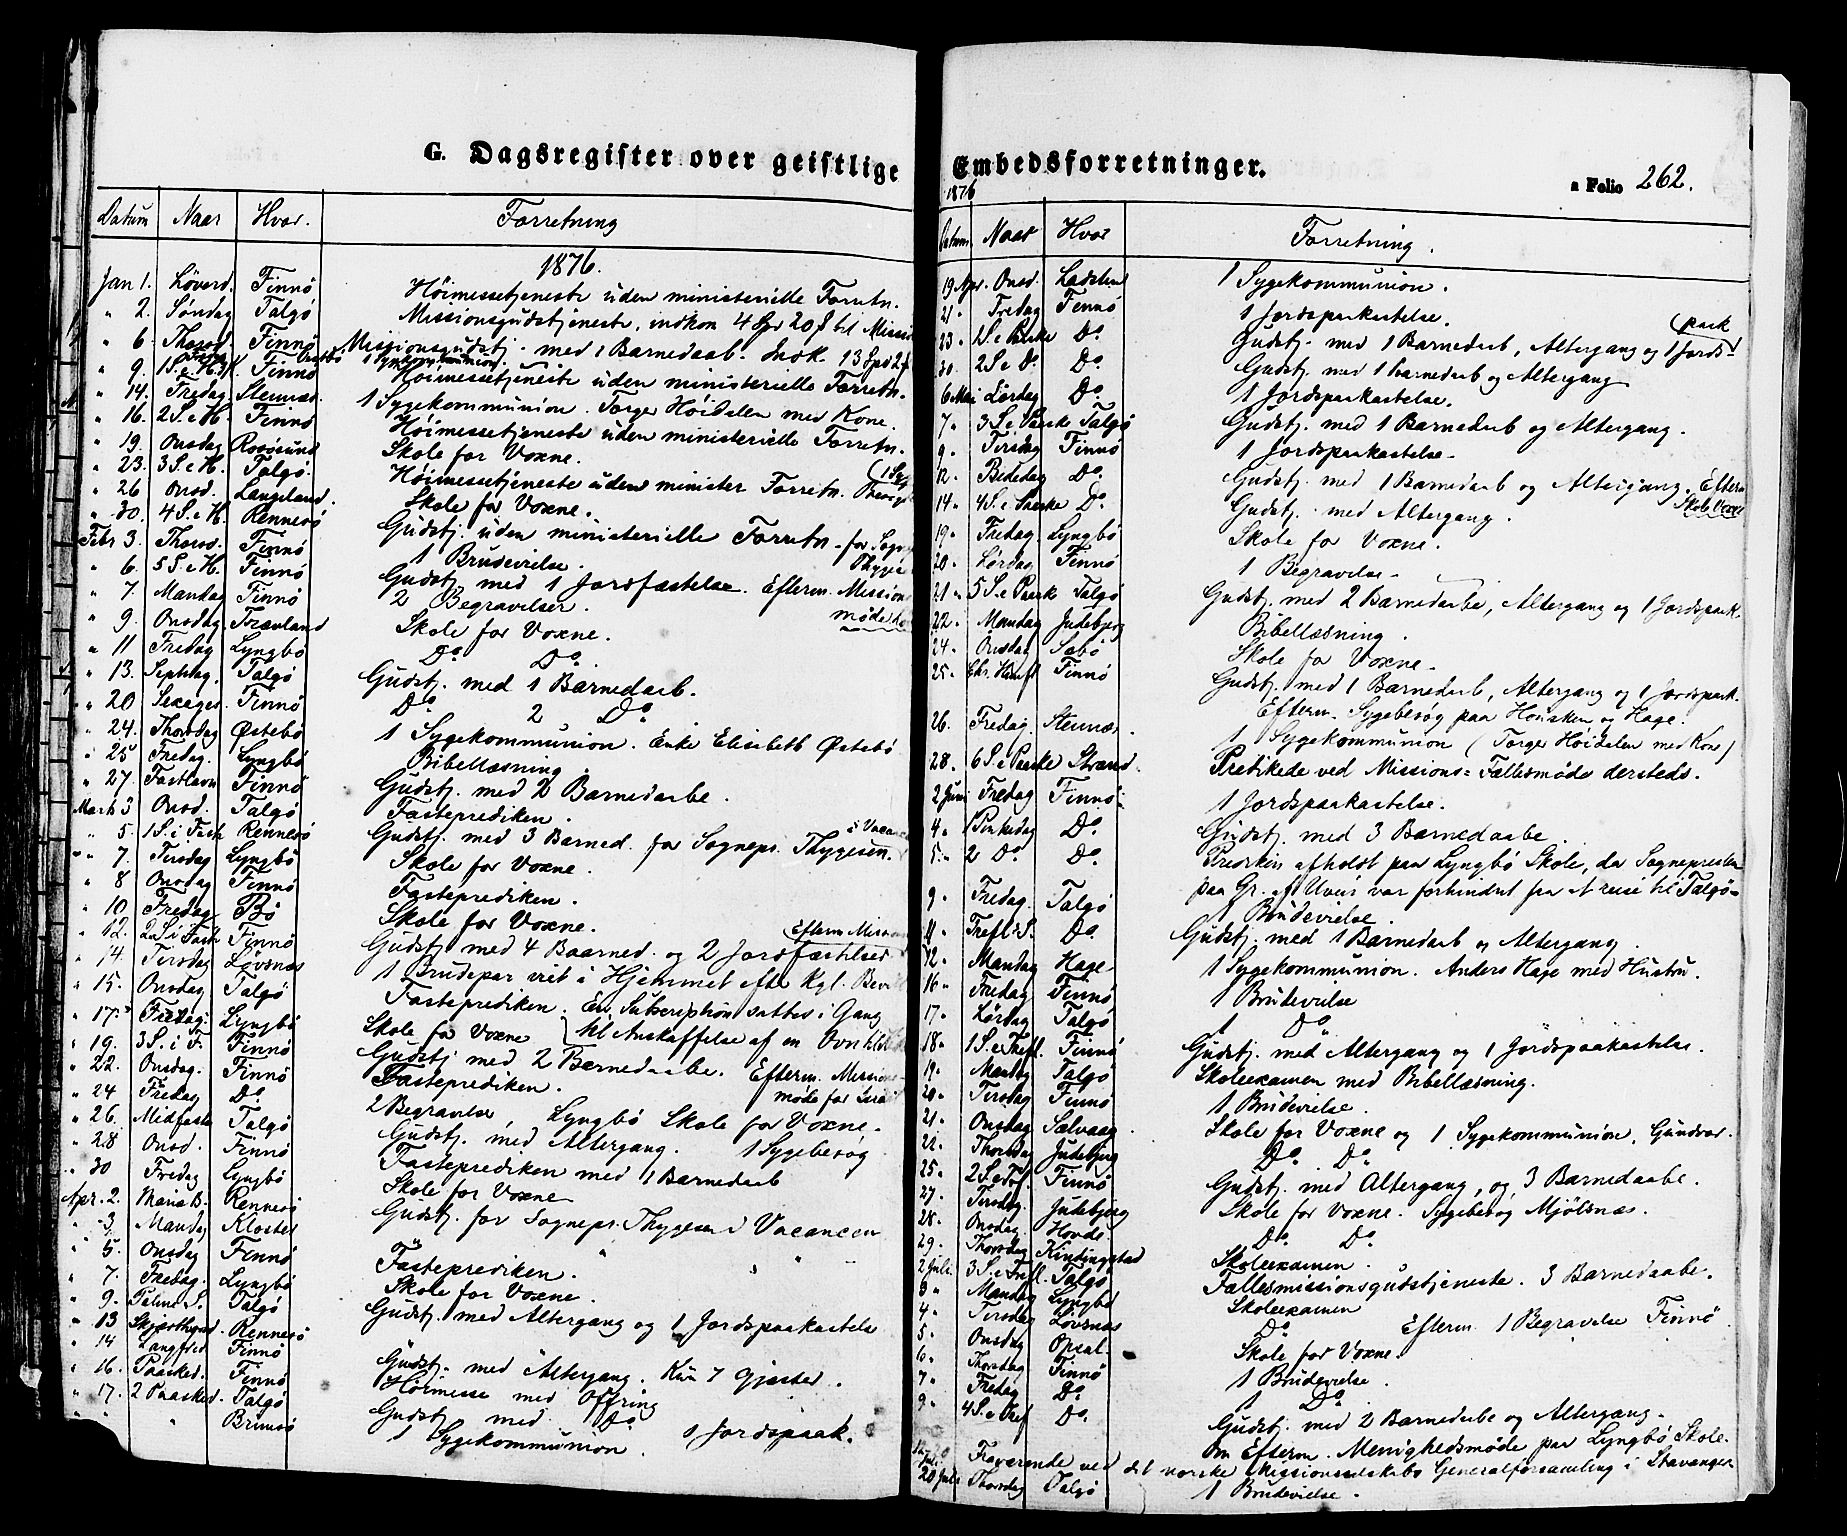 G. Dagsregister over geistlige
Datum Naar Hvor. Forretning
1876.
Jan 1. Løverd. Finnö Höimessetjeneste uden ministerielle Forretn.
" 2. Søndag Talgö Missionsgudstjeneste, indkom 4 Spd 20 ß til Mission
" 6. Thorsd. Finnö Missionsgudstj. med 1 Barnedaab. Indk. 13 Spd 2
" 9. 1 S. e. H. 3 K. Finnö Höimessetjeneste uden ministerielle Forretn.
" 14. Fredag Stennæs. 1 Sygekommunion. Torger Höidalen med Kone.
" 16. 2 S. e H. Finnö Höimessetjeneste uden ministerielle Forretn.
" 19. Onsdag Rosösund Skole for Voxne.
" 23. 3 S. e H. Talgö. Höimessetjeneste uden minister Forretn.
" 26 Onsd. Langeland. Skole for Voxne.
" 30. 4 S. e H. Rennesö Gudstj. uden ministerielle Forretn. for Sogn
Febr 3. Thorsd. Finnö 1 Brudevielse. Thyges
" 6. 5 S. e H. Finnö Gudstj. med 1 Jordfæstelse. Efterm. Mission
" 7. Mandag Finnö 2 Begravelser. møde
" 9. Onsdag Toravland Skole for Voxne.
" 11 Fredag Lyngbö Do Do
" 13. Septuag. Talgö Gudstj. med 1 Barnedaab.
" 20 Sexages. Finnö Do 2 Do
" 24. Thorsdag Østebö 1 Sygekommunion. Enke Elisabeth Østebö
" 25 Fredag. Lyngbö Bibellæsning.
" 27 Fastlavn Finnö Gudstj. med 2 Barnedaabe.
Marts 3 Onsd. Talgö Fasteprediken.
" 5. 1 S. i Fast Rennesö Gudstj. med 3 Barned. for Sognepr. Thygesen i Vacanc
" 7. Tirsdag Lyngbö Skole for Voxne.
" 8 Onsdag Finnö Fasteprediken.
" 10 Fredag Bö Skole for Voxne.
" 12. 2 S. i Fast Finnö Gudstj med 4 Baarned. og 2 Jordfæstelser Efterm Mission
" 14. Tirsdag Lövsnæs 1 Brudepar viet i Hjemmet efter Kgl. Bevil
" 15. Onsdag Talgö Fasteprediken. En Subscription sattes i Gang
" 17. Fredag. Lyngbö Skole for Voxne til Anskaffelse af en Ovn til
" 19. 3 S. i F. Finnö Gudstj med 2 Barnedaabe. Efterm. Missions
" 22. Onsdag. Finnö Fasteprediken. møde for
" 24 Fredag Do 2 Begravelser Lyngbö Skole for Voxne.
" 26. Midfaste Talgö Gudstj. med Altergang. 1 Sygebesøg
" 28 Onsd. Finnö Fasteprediken med 1 Barnedaab
" 30 Fredag Lyngbö Skole for Voxne
Apr. 2. Maria B. Rennesö Gudstj. for Sognepr. Thygesen i Vacancen
" 3. Mandag Kloster " "
" 5. Onsdag Finnö Fasteprediken.
" 7. Fredag. Lyngbö Skole for Voxne.
" 9. Palme S. Talgö Gudstj. med Altergang og 1 Jordspaakastelse
" 13 Skjærthorsd Rennesö
" 14 Langfred Finnö Gudstj. med Altergang. Kun 7 gjester.
" 16. Paasked. Finnö Höimesse med Offring
" 17. 2 Paasked. Talgö Gudstj med Do 1 Jordspaak.
" " Brimsö 1 Sygekommunion.
Embedsforretninger.
1876 a Folio 262.
Datum Naar Hvor Forretning.
19 Apr. Onsd. Ladsten 1 Sygekommunion.
21 " Fredag Finnö 1 Jordspaakastelse.
23 " 1 S. e Paaske Do Gudstj. med 1 Barnedaab, Altergang og 1 Jords- paak
30. 2 S. e Do. Do. Gudstj med 1 barnedaab og Altergang
6 Mai Lördag Do. 1 Jordspaakastelse.
7 " 3 S. e Paaske Talgö Gudstj. med 1 Barnedaab og Altergang.
9 " Tirsdag Finnö 1 Jordspaakastelse.
12. Bededag Do. Gudstj. med 1 Barnedaab og Altergang. Efterm
14 " 4 S. e. Paaske Do. Gudstj. med Altergang. Skole Voxne
19. Fredag Lyngbö Skole for Voxne.
20. Lördag Finnö 1 Begravelse.
21 " 5 S. e Paask Talgö Gudstj. med 2 Barnedaabe, Altergang og 1 Jordspaak.
22. Mandag Judebjerg Bibellæsning.
24. Onsdag Sæbö Skole for Voxne.
25. Chr. Himfl Finnö Gudstj. med 1 Barnedaab, Altergang og 1 Jordspaak.
Efterm. Sygebesøg paa Housken og Hage.
26. Fredag. Stennæs. 1 Sygekommunion (Torger Höidalen med Kone)
28. 6 S. e Paaske Strand. Predikede ved Missions-Fællesmøde dersteds.
2 Juni Fredag Finnö 1 Jordspaakastelse.
4 " 1 Pintsedag Do. Gudstj. med 3 Barnedaabe.
5. " 2 Do Do. Prediken afholdt paa Lyngbö Skole, da Sognepresten
paa Gr. af Uveir var forhindret fra at reise til Talgö.
9. Fredag Talgö 1 Brudevielse.
11. Trefl. S. Do. Gudstj. med 1 Barnedaab og Altergang.
12. Mandag Hage 1 Sygekommunion. Anders Hage med Hustru.
16. Fredag Finnö 1 Brudevielse
17. Lördag Talgö 1 Do
18. 1 S. e Trefl. Finnö Gudstj. med Altergang og 1 Jordspaakastelse.
19. Mandag Talgö Skoleexamen med Bibellæsning.
20. Tirsdag Finnö 1 Brudevielse.
21. Onsdag Sælvaag. Skole for Voxne og 1 Sygekommunion, Gundvor.
22. Thorsdag Judebjerg Do Do
25. 2 S. e Tref. Finnö Gudstj. med Altergang, og 3 Barnedaabe.
27. Tirsdag. Judebjerg Skole for Voxne. Sygebesøg Mjölsnæs.
28. Onsdag. Hovde. Do Do.
29. Thorsdag Kindingstad Skoleexamen.
2 Juli. 3 S. e Trefl. Talgö Fællesmissionsgudstjeneste. 3 Barnedaabe.
3 " Mandag Lyngbö Skoleexamen
4. Tirsdag Lövsnæs Do Efterm 1 Begravelse Finnö
5. Onsdag Opsal. Skole for Voxne.
6. Thorsdag Finnö 1 Brudevielse.
7. Fredag Do. 1 Do
9. 4 S. e Tref Do. Gudstj med 2 Barnedaabe og Altergang.
Om Efterm. Menighedsmöde paa Lyngbö Skole.
Juli Fraværende ved det norske Missionsselskabs Generalforsamling i Stavanger
20 Juli Thorsdag Talgö 1 Brudevielse.